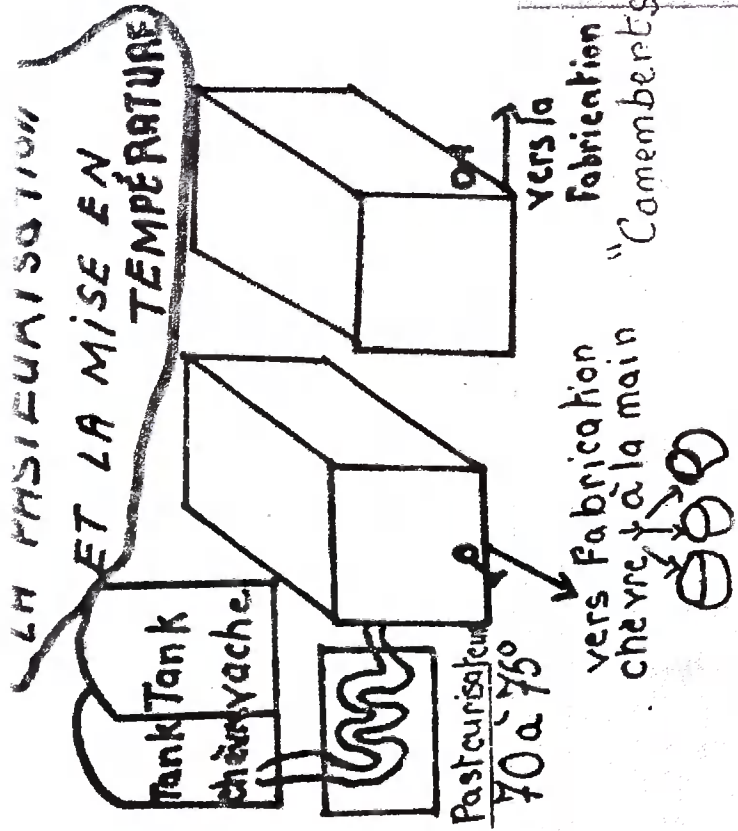 LA PASTEURISATION
ET LA MISE EN
TEMPÉRATURE
Tank
chèvre
Tank
vache
Pasteurisateur
70 à 75°
vers Fabrication
chèvre à la main
vers la
Fabrication
"Camemberts